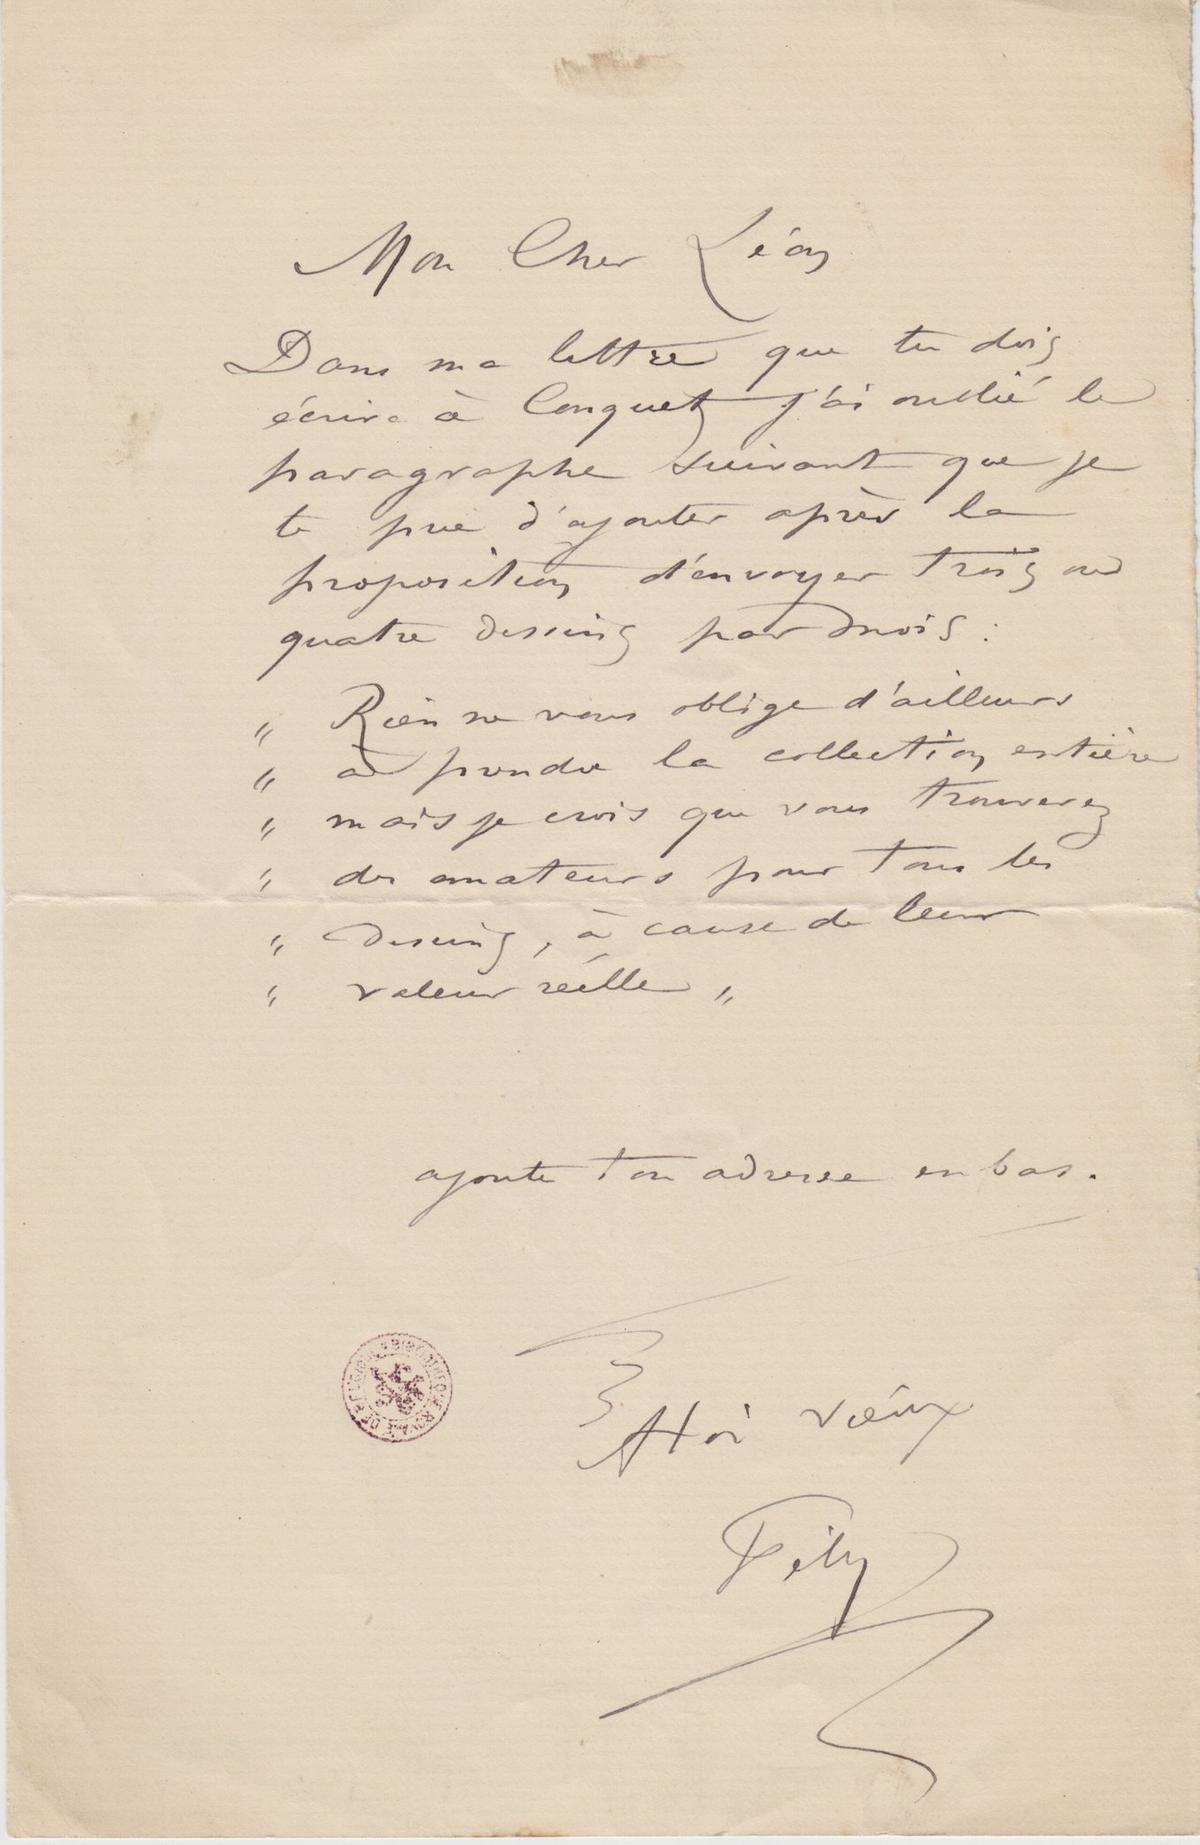 Mon Cher Léon
Dans ma lettre que tu dois
écrire à Conquet j'ai oublié le
paragraphe suivant que je
te prie d'ajouter après la
proposition d'envoyer trois ou
quatre dessins par mois :
" Rien ne vous oblige d'ailleurs
" à prendre la collection entière
" mais je crois que vous trouverez
" des amateurs pour tous les
" dessins, à cause de leur
" valeur réelle "
ajoute ton adresse en bas.
à toi vieux
Fély
BIBLIOTHÈQUE ROYALE DE BELGIQUE